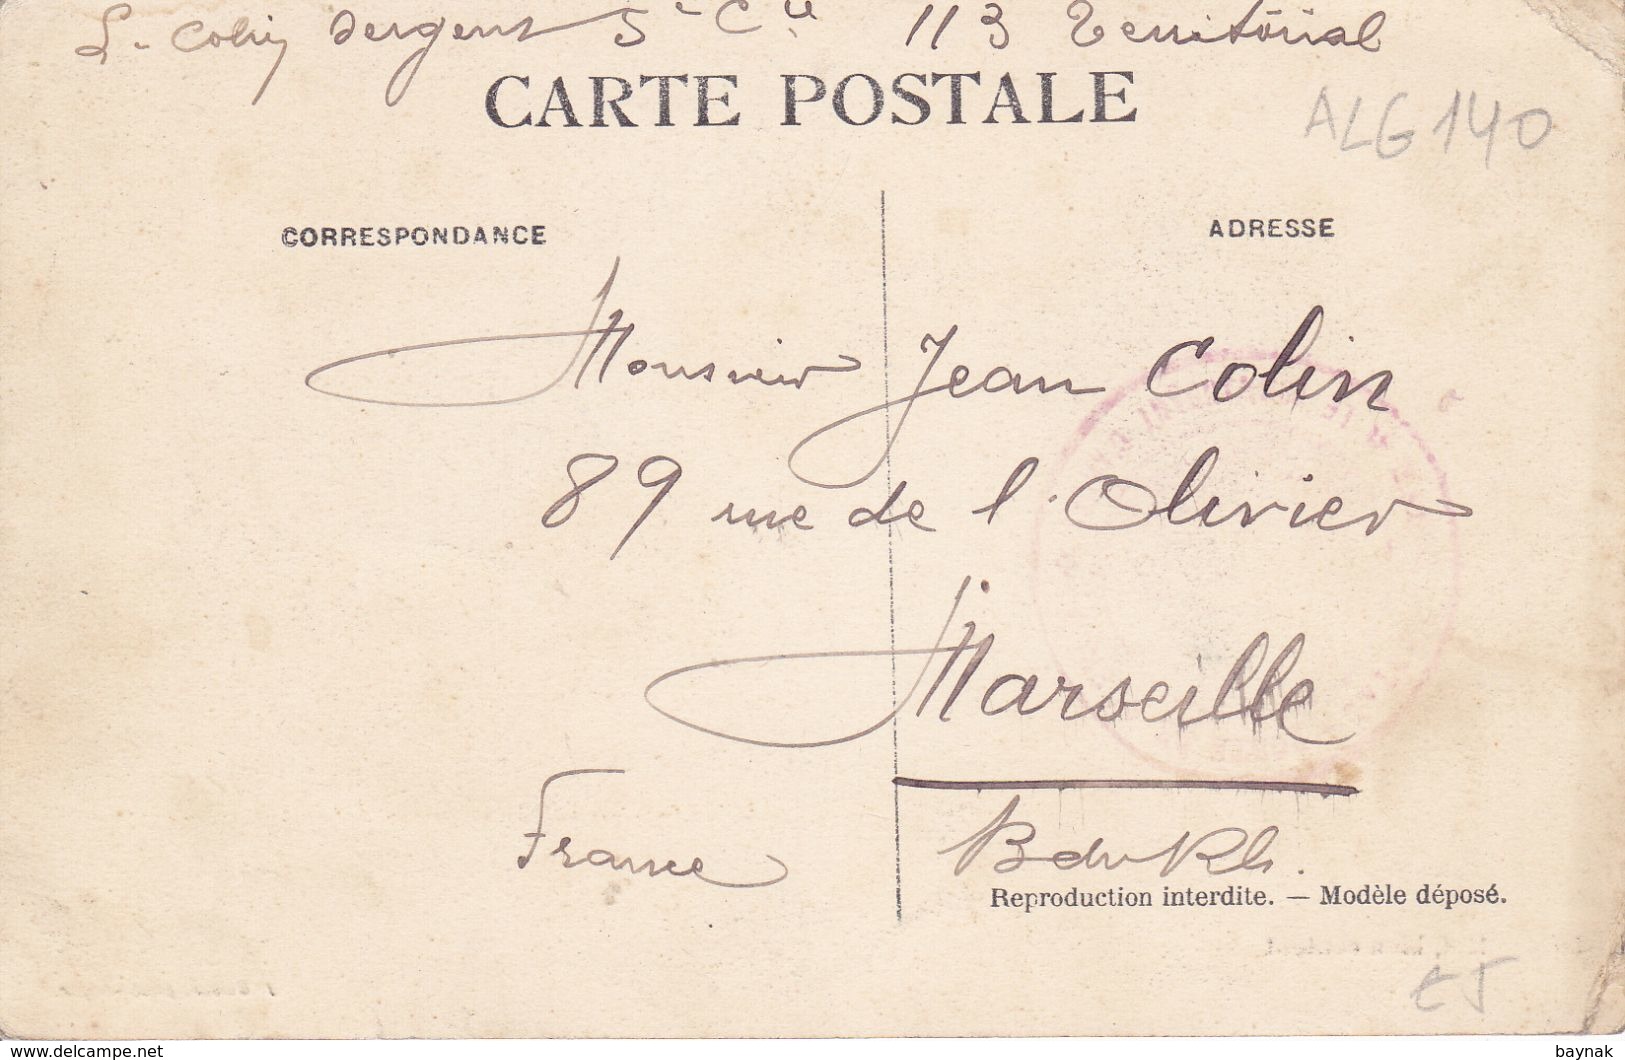 L. Colin Sergent 5e Cie 113 Territorial
CARTE POSTALE
ALG 140
CORRESPONDANCE
ADRESSE
Monsieur Jean Colin
89 rue de l'Olivier
Marseille
France
B du Rh.
Reproduction interdite. — Modèle déposé.
www.delcampe.net
baynak